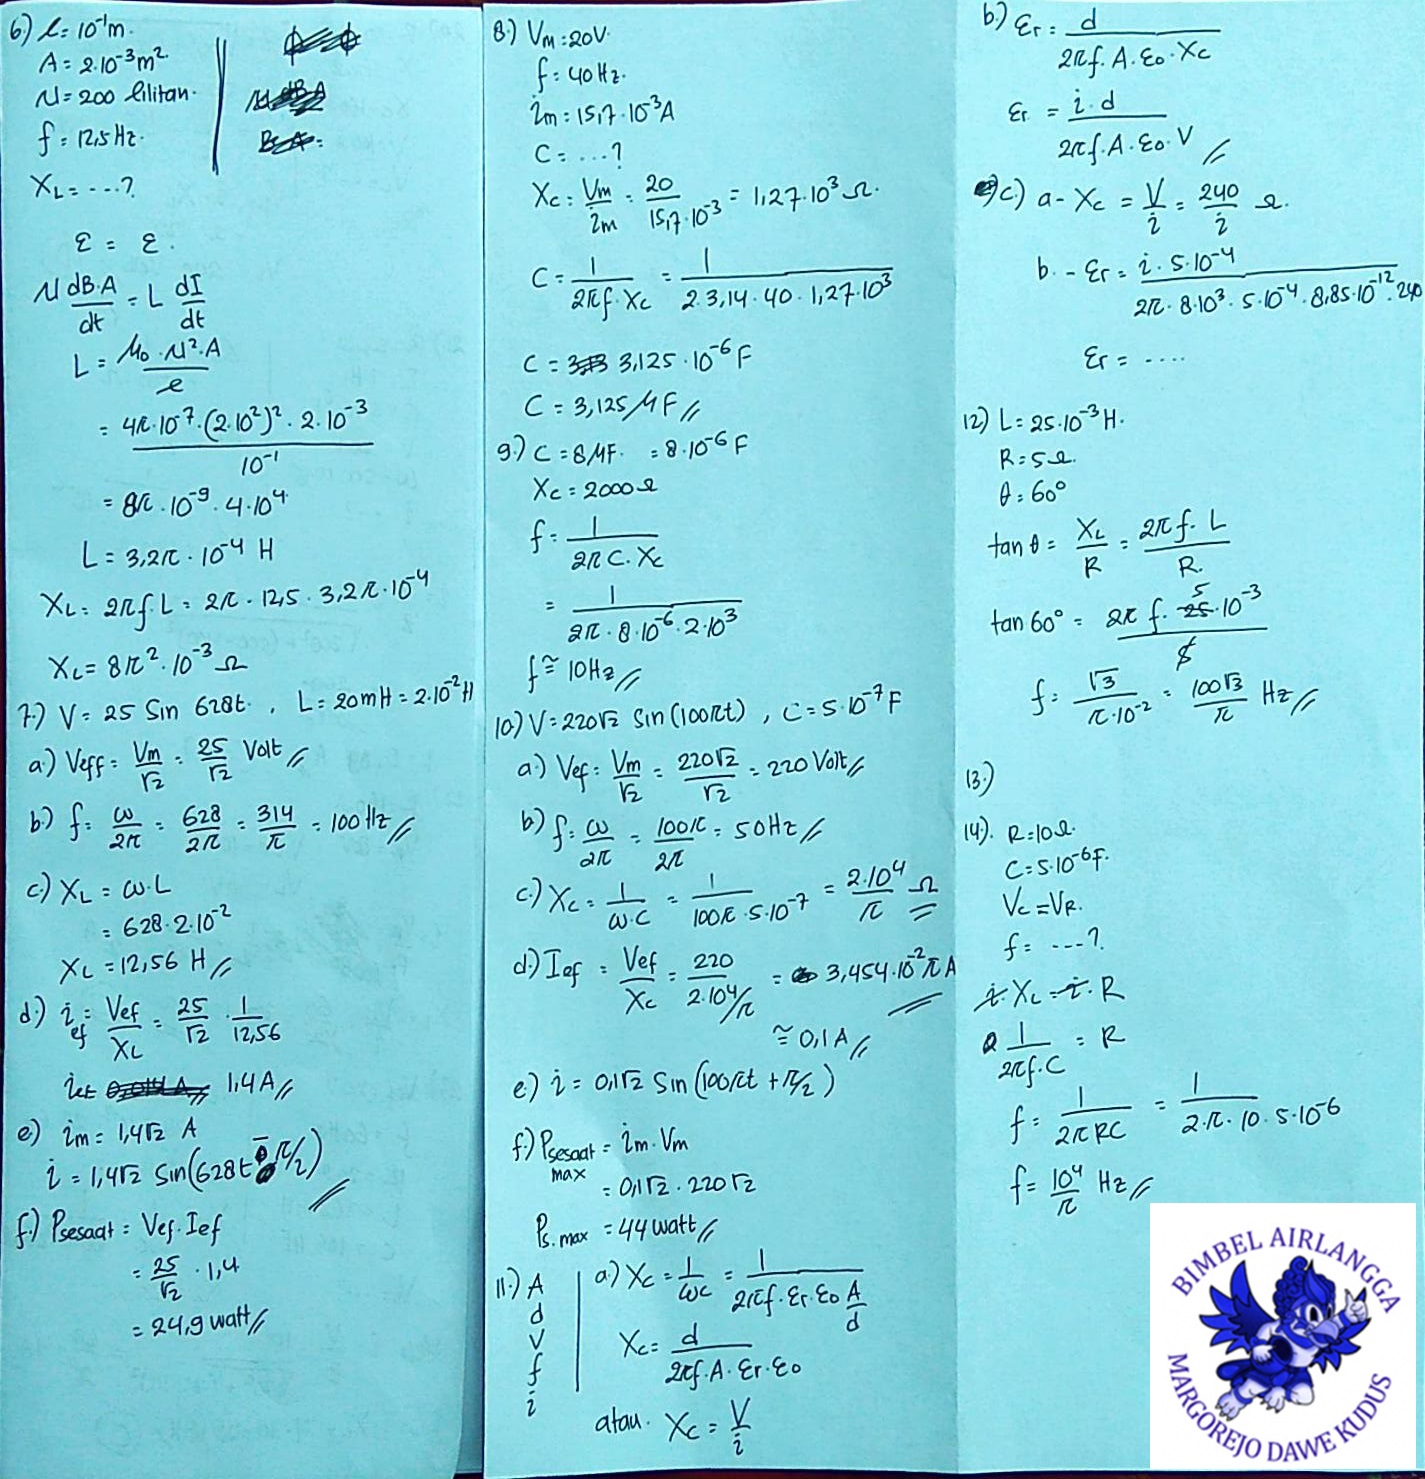 6.) l = 10⁻¹ m.
A = 2·10⁻³ m².
N = 200 lilitan.
f = 12,5 Hz.
X_L = ....?
ε = ε.
N dB·A/dt = L dI/dt
L = μ₀·N²·A/l
= 4π·10⁻⁷·(2·10²)²·2·10⁻³/10⁻¹
= 8π·10⁻⁹·4·10⁴
L = 3,2π·10⁻⁴ H
X_L = 2πf·L = 2π·12,5·3,2π·10⁻⁴
X_L = 8π²·10⁻³ Ω
7.) V = 25 Sin 628t. , L = 20mH = 2·10⁻² H
a.) Veff = Vm/√2 = 25/√2 Volt
b.) f = ω/2π = 628/2π = 314/π = 100 Hz
c.) X_L = ω·L
= 628·2·10⁻²
X_L = 12,56 H
d.) i_ef = Vef/X_L = 25/√2 · 1/12,56
ief 1,4 A
e) im = 1,4√2 A
i = 1,4√2 Sin(628t - π/2)
f.) Psesaat = Vef·Ief
= 25/√2 · 1,4
= 24,9 watt
8.) Vm = 20V.
f = 40 Hz.
im = 15,7·10⁻³ A
C = ....?
Xc = Vm/im = 20/15,7·10⁻³ = 1,27·10³ Ω.
C = 1/2πf·Xc = 1/2·3,14·40·1,27·10³
C = 3,125·10⁻⁶ F
C = 3,125 μF
9.) C = 8μF. = 8·10⁻⁶ F
Xc = 2000 Ω
f = 1/2πC·Xc
= 1/2π·8·10⁻⁶·2·10³
f ≅ 10 Hz
10.) V = 220√2 Sin(100πt) , C = 5·10⁻⁷ F
a.) Vef = Vm/√2 = 220√2/√2 = 220 Volt
b) f = ω/2π = 100π/2π = 50 Hz
c.) Xc = 1/ω·C = 1/100π·5·10⁻⁷ = 2·10⁴/π Ω
d.) Ief = Vef/Xc = 220/2·10⁴/π = 3,454·10⁻² π A
≅ 0,1 A
e) i = 0,1√2 Sin(100πt + π/2)
f.) Psesaat max = im·Vm
= 0,1√2·220√2
Ps.max = 44 watt
11.) A
d
V
f
i
a.) Xc = 1/ωC = 1/2πf·εr·ε₀ A/d
Xc = d/2πf·A·εr·ε₀
atau. Xc = V/i
b.) εr = d/2πf·A·ε₀·Xc
εr = i·d/2πf·A·ε₀·V
c.) a - Xc = V/i = 240/i Ω.
b. - εr = i·5·10⁻⁴/2π·8·10³·5·10⁻⁴·8,85·10⁻¹²·240
εr = ....
12.) L = 25·10⁻³ H.
R = 5Ω.
θ = 60°
tan θ = X_L/R = 2πf·L/R.
tan 60° = 2π f·25 5·10⁻³/5
f = √3/π·10⁻² = 100√3/π Hz
13.)
14.) R = 10 Ω.
C = 5·10⁻⁶ F.
Vc = VR.
f = ....?
i·X_L = i·R
1/2πf·C = R
f = 1/2πRC = 1/2·π·10·5·10⁻⁶
f = 10⁴/π Hz
BIMBEL AIRLANGGA
MARGOREJO DAWE KUDUS